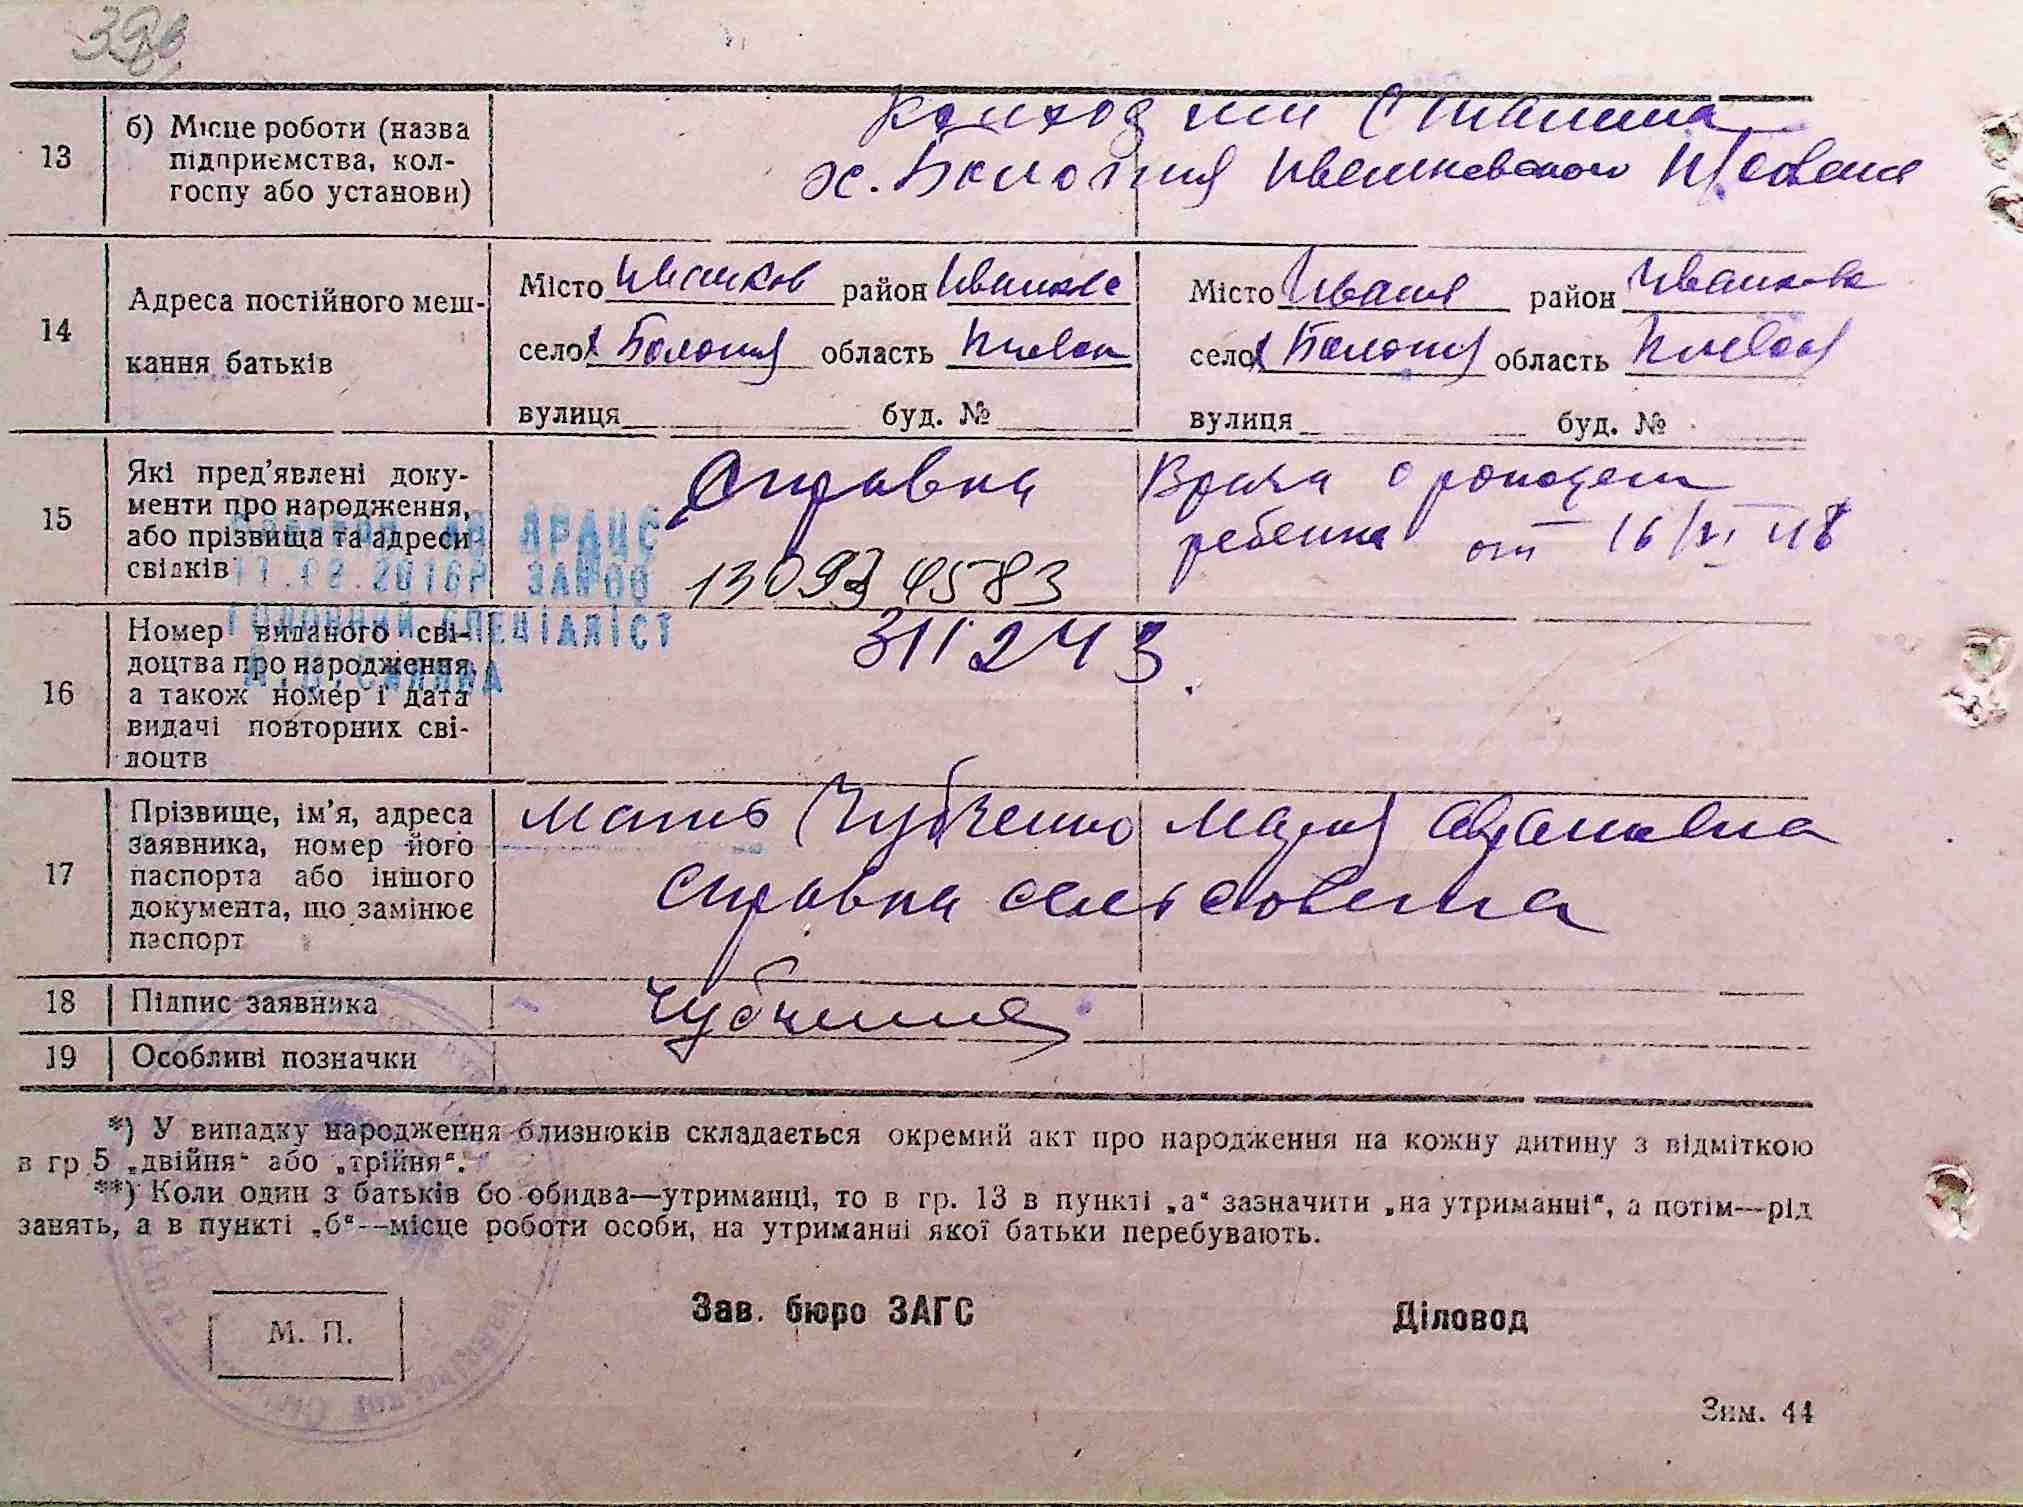 13 б) Місце роботи (назва підприємства, колгоспу або установи)
Колхоз им Сталина
х. Болотня Иванковского
14 Адреса постійного мешкання батьків
Місто Иванков район Иванков
село х Болотня область Киевск
вулиця буд. №
Місто Иванков район Иванков
село х Болотня область Киевск
вулиця буд. №
15 Які пред'явлені документи про народження, або прізвища та адреси свідків
Справка Врача о рожден
ребенка от 16/VI 48
13093 4583
ГОЛОВНИЙ СПЕЦІАЛІСТ
16 Номер виданого свідоцтва про народження, а також номер і дата видачі повторних свідоцтв
311243.
17 Прізвище, ім'я, адреса заявника, номер його паспорта або іншого документа, що замінює паспорт
Мать Чубченко Мария
Справка сельсовета
18 Підпис заявника
19 Особливі позначки
*) У випадку народження близнюків складається окремий акт про народження на кожну дитину з відміткою
в гр 5 „двійня" або „трійня".
**) Коли один з батьків бо обидва—утриманці, то в гр. 13 в пункті „а" зазначити „на утриманні", а потім—рід
занять, а в пункті „б"—місце роботи особи, на утриманні якої батьки перебувають.
М. П.
Зав. бюро ЗАГС
Діловод
Зим. 44